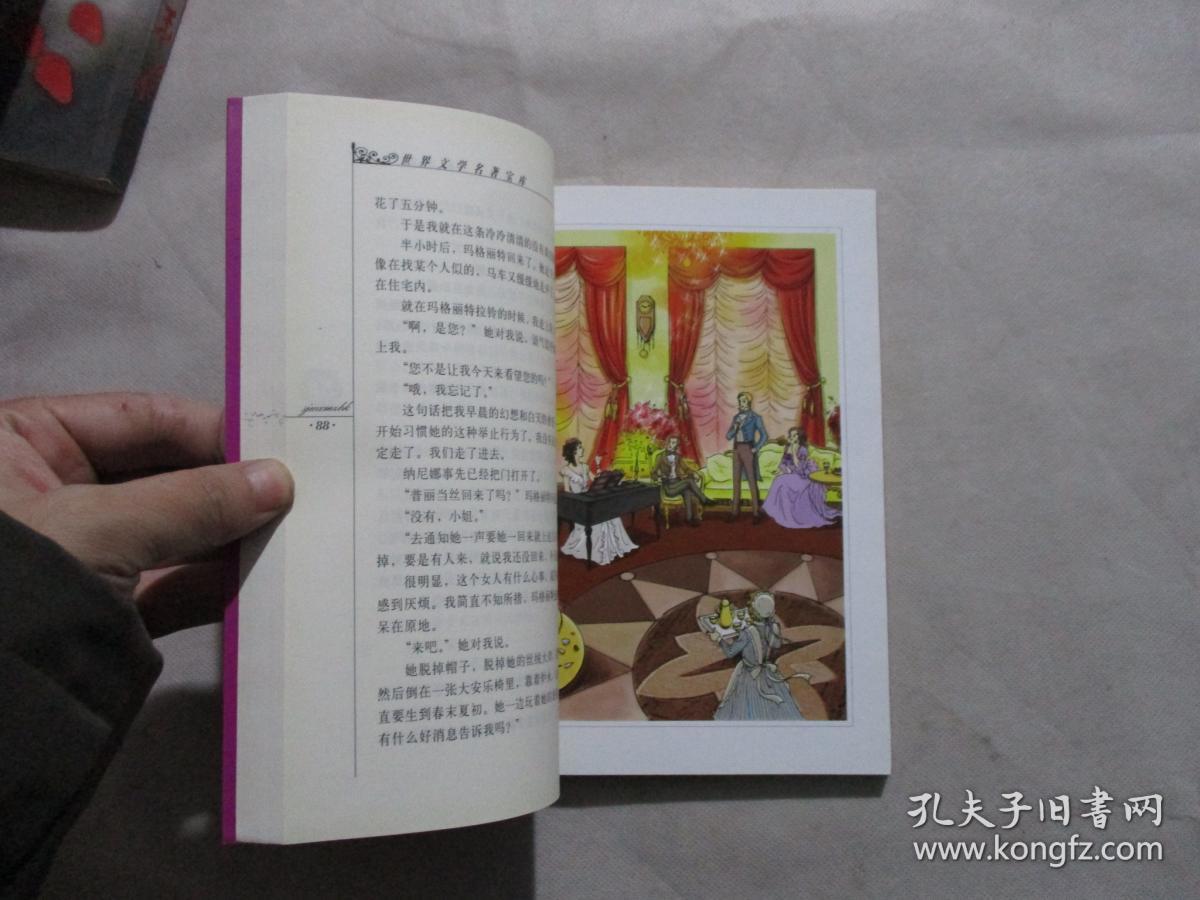 世界文学名著宝库
花了五分钟。
于是我就在这条冷冷清清的没有
半小时后，玛格丽特回来了。她
像在找某个人似的。马车又缓缓地走
在住宅内。
就在玛格丽特拉铃的时候，我走上
“啊，是您？”她对我说，语气
上我。
“您不是让我今天来看望您的吗？”
“哦，我忘记了。”
这句话把我早晨的幻想和白天的
开始习惯她的这种举止行为了。我没有
定走了。我们走了进去。
纳尼娜事先已经把门打开了。
“普丽当丝回来了吗？”玛格丽
“没有，小姐。”
“去通知她一声要她一回来就上
掉，要是有人来，就说我还没回来，
很明显，这个女人有什么心事，
感到厌烦。我简直不知所措，玛格丽
呆在原地。
“来吧。”她对我说。
她脱掉帽子，脱掉她的丝绒大
然后倒在一张大安乐椅里，靠着炉火，
直要生到春末夏初。她一边玩着她的
有什么好消息告诉我吗？”
·88·
孔夫子旧书网
www.kongfz.com